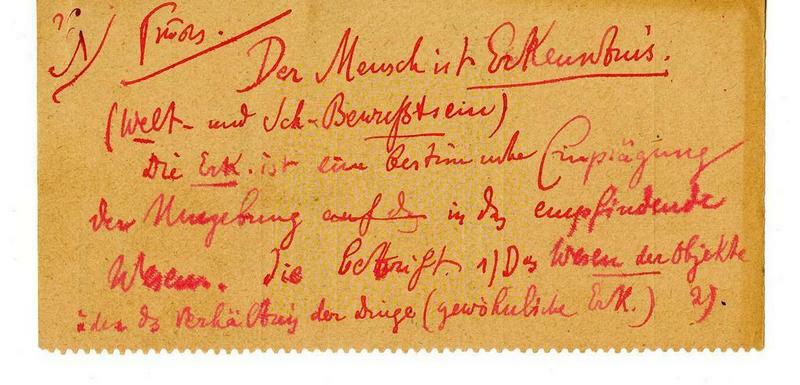 Der Mensch ist Erkenntnis.
(Welt- und Ich-Bewußtsein)
Die Erk. ist eine bestimmte Einprägung
der Umgebung auf das in das empfindende
Wesen. Sie betrifft 1) Das Wesen der Objekte
das Verhältnis der Dinge (gewöhnliche Erk.) 2)